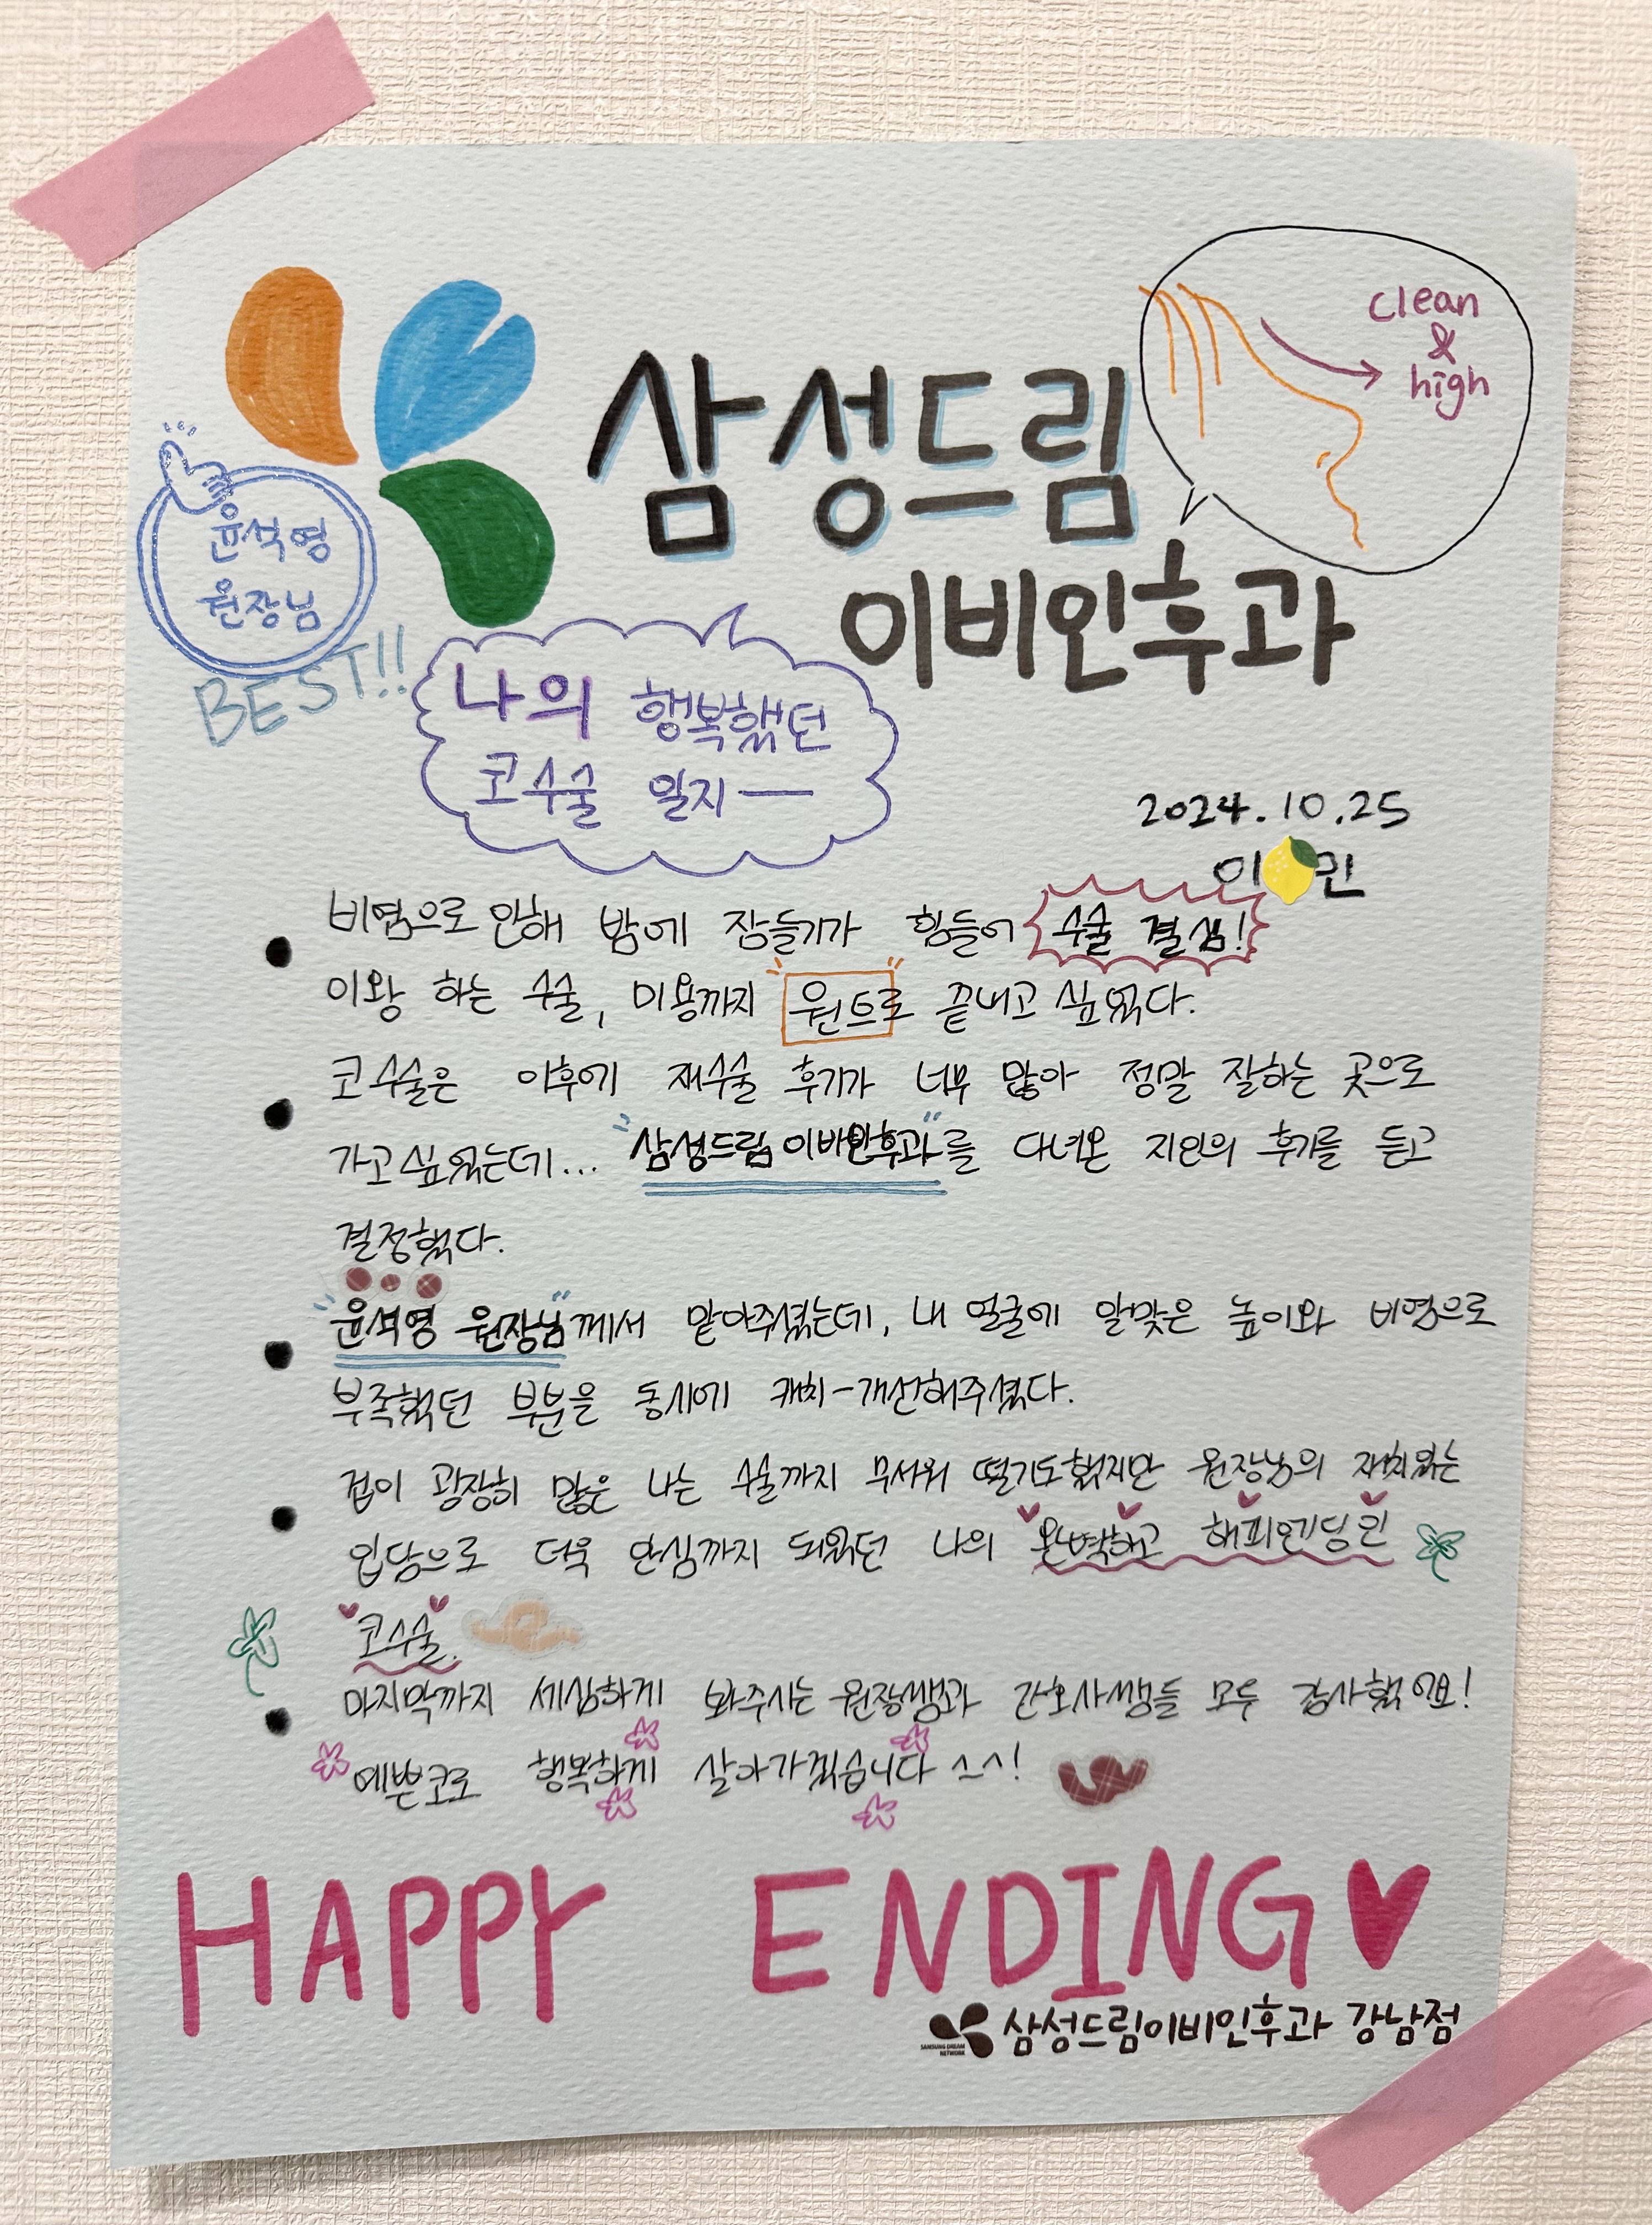 clean
&
high
삼성드림
이비인후과
윤석영
원장님
BEST!!
나의 행복했던
코수술 일지ㅡ
2024.10.25
이 민
비염으로 인해 밤에 잠들기가 힘들어 수술 결심!
이왕 하는 수술, 미용까지 원트로 끝내고 싶었다.
코수술은 이후에 재수술 후기가 너무 많아 정말 잘하는 곳으로
가고싶었는데... "삼성드림이비인후과"를 다녀온 지인의 후기를 듣고
결정했다.
"윤석영 원장님"께서 맡아주셨는데, 내 얼굴에 알맞은 높이와 비염으로
부족했던 부분을 동시에 캐치-개선해주셨다.
겁이 굉장히 많은 나는 수술까지 무서워 떨기도했지만 원장님의 재치있는
입담으로 더욱 안심까지 되었던 나의 완벽하고 해피엔딩인
코수술.
마지막까지 세심하게 봐주시는 원장쌤과 간호사쌤들 모두 감사했어요!
예쁜코로 행복하게 살아가겠습니다 ^-^!
HAPPY ENDING♥
SAMSUNG DREAM
NETWORK
삼성드림이비인후과 강남점